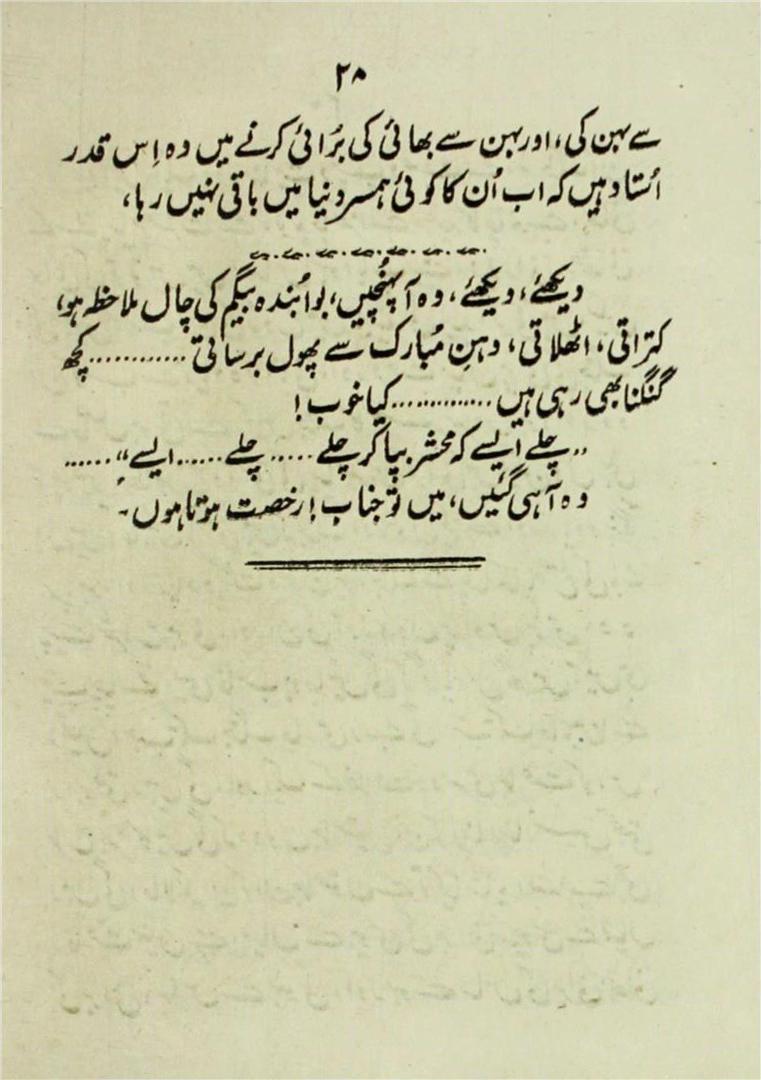 ۲۸
سے بہن کی، اور بہن سے بھائی کی بُرائی کرنے میں وہ اِس قدر
اُستاد ہیں کہ اب اُن کا کوئی ہمسر دنیا میں باقی نہیں رہا،
دیکھئے، دیکھئے، وہ آپہُنچیں، بوا بُندہ بیگم کی چال ملاحظہ ہو،
کتراتی، اٹھلاتی، دہنِ مُبارک سے پھول برساتی ............ کچھ
گنگنا بھی رہی ہیں ............. کیا خوب!
„چلے ایسے کہ محشر بپا کر چلے ..... چلے ...... ایسے“ ......
وہ آہی گئیں، میں تو جناب! رخصت ہوتا ہوں۔